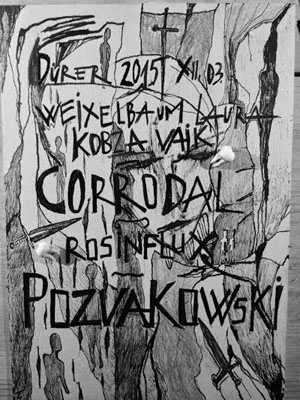 DÜRER 2015 XII. 03
WEIXELBAUM LAURA
KOBZA VAJK
CORRODAL
ROSINFLUX
POZVAKOWSKI